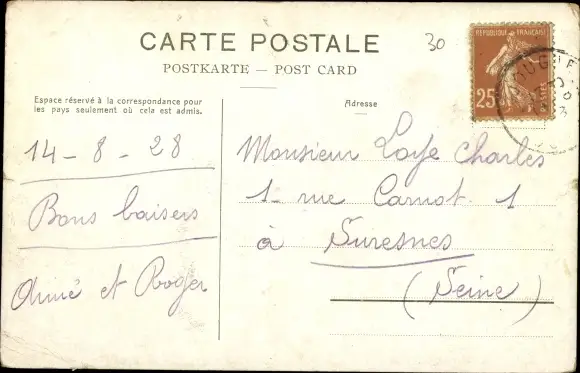 CARTE POSTALE
30
POSTKARTE — POST CARD
RÉPUBLIQUE FRANÇAISE
25
POSTES
Espace réservé à la correspondance pour
les pays seulement où cela est admis.
Adresse
14 - 8 - 28
Bons baisers
Aimé et Roger
Monsieur Loye Charles
1 - rue Carnot 1
à Suresnes
(Seine)